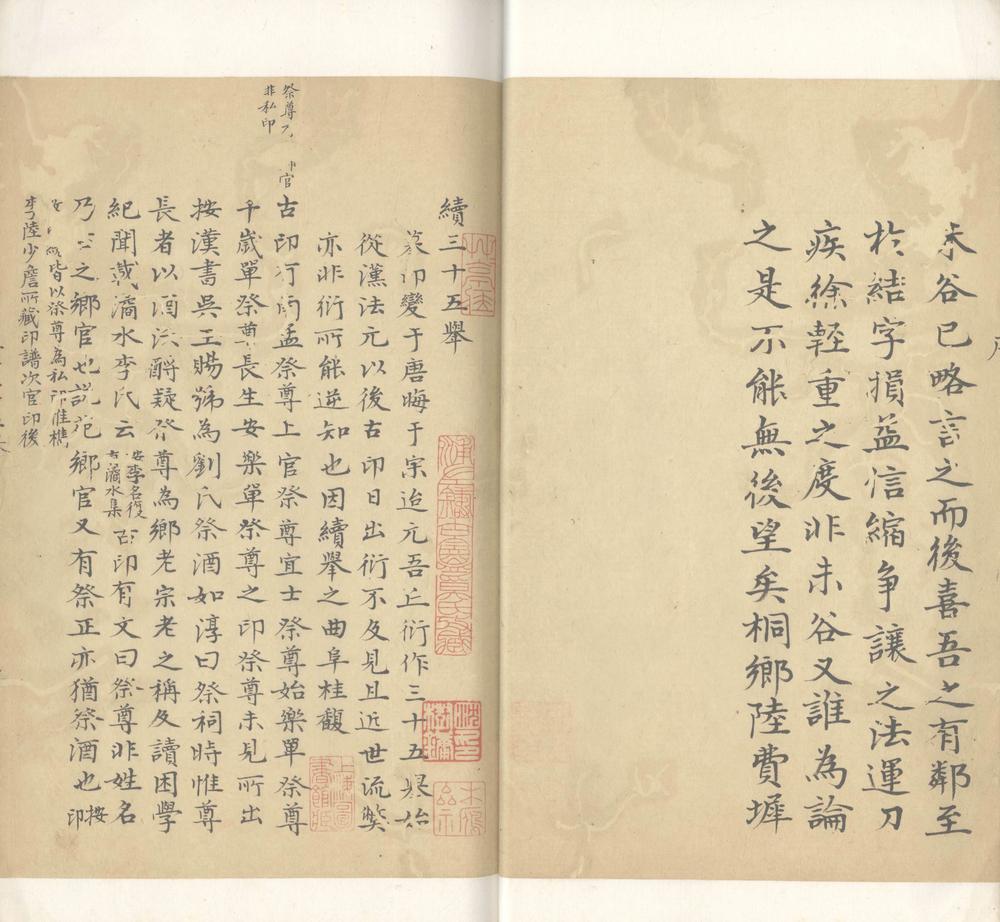 未谷已略言之而後喜吾之有鄰至
於結字損益信縮争讓之法運刀
疾徐輕重之度非未谷又誰為論
之是不能無後望矣桐鄉陸費墀
續三十五舉
篆印變于唐晦于宋迨元吾丘衍作三十五舉始
從漢法元以後古印日出衍不及見且近世流獘
亦非衍所能逆知也因續舉之曲阜桂馥
祭尊
非私印
官
古印有孟祭尊上官祭尊宜士祭尊始樂單祭尊
千歲單祭尊長生安樂單祭尊之印祭尊未見所出
按漢書吳王賜號為劉氏祭酒如淳曰祭祠時惟尊
長者以酒沃酹疑祭尊為鄉老宗老之稱及讀困學
紀聞載潏水李氏云
按李名復
有潏水集
古印有文曰祭尊非姓名
乃古之鄉官也說苑鄉官又有祭正亦猶祭酒也
按印
皆以祭尊為私印惟檇
李陸少詹所藏印譜次官印後